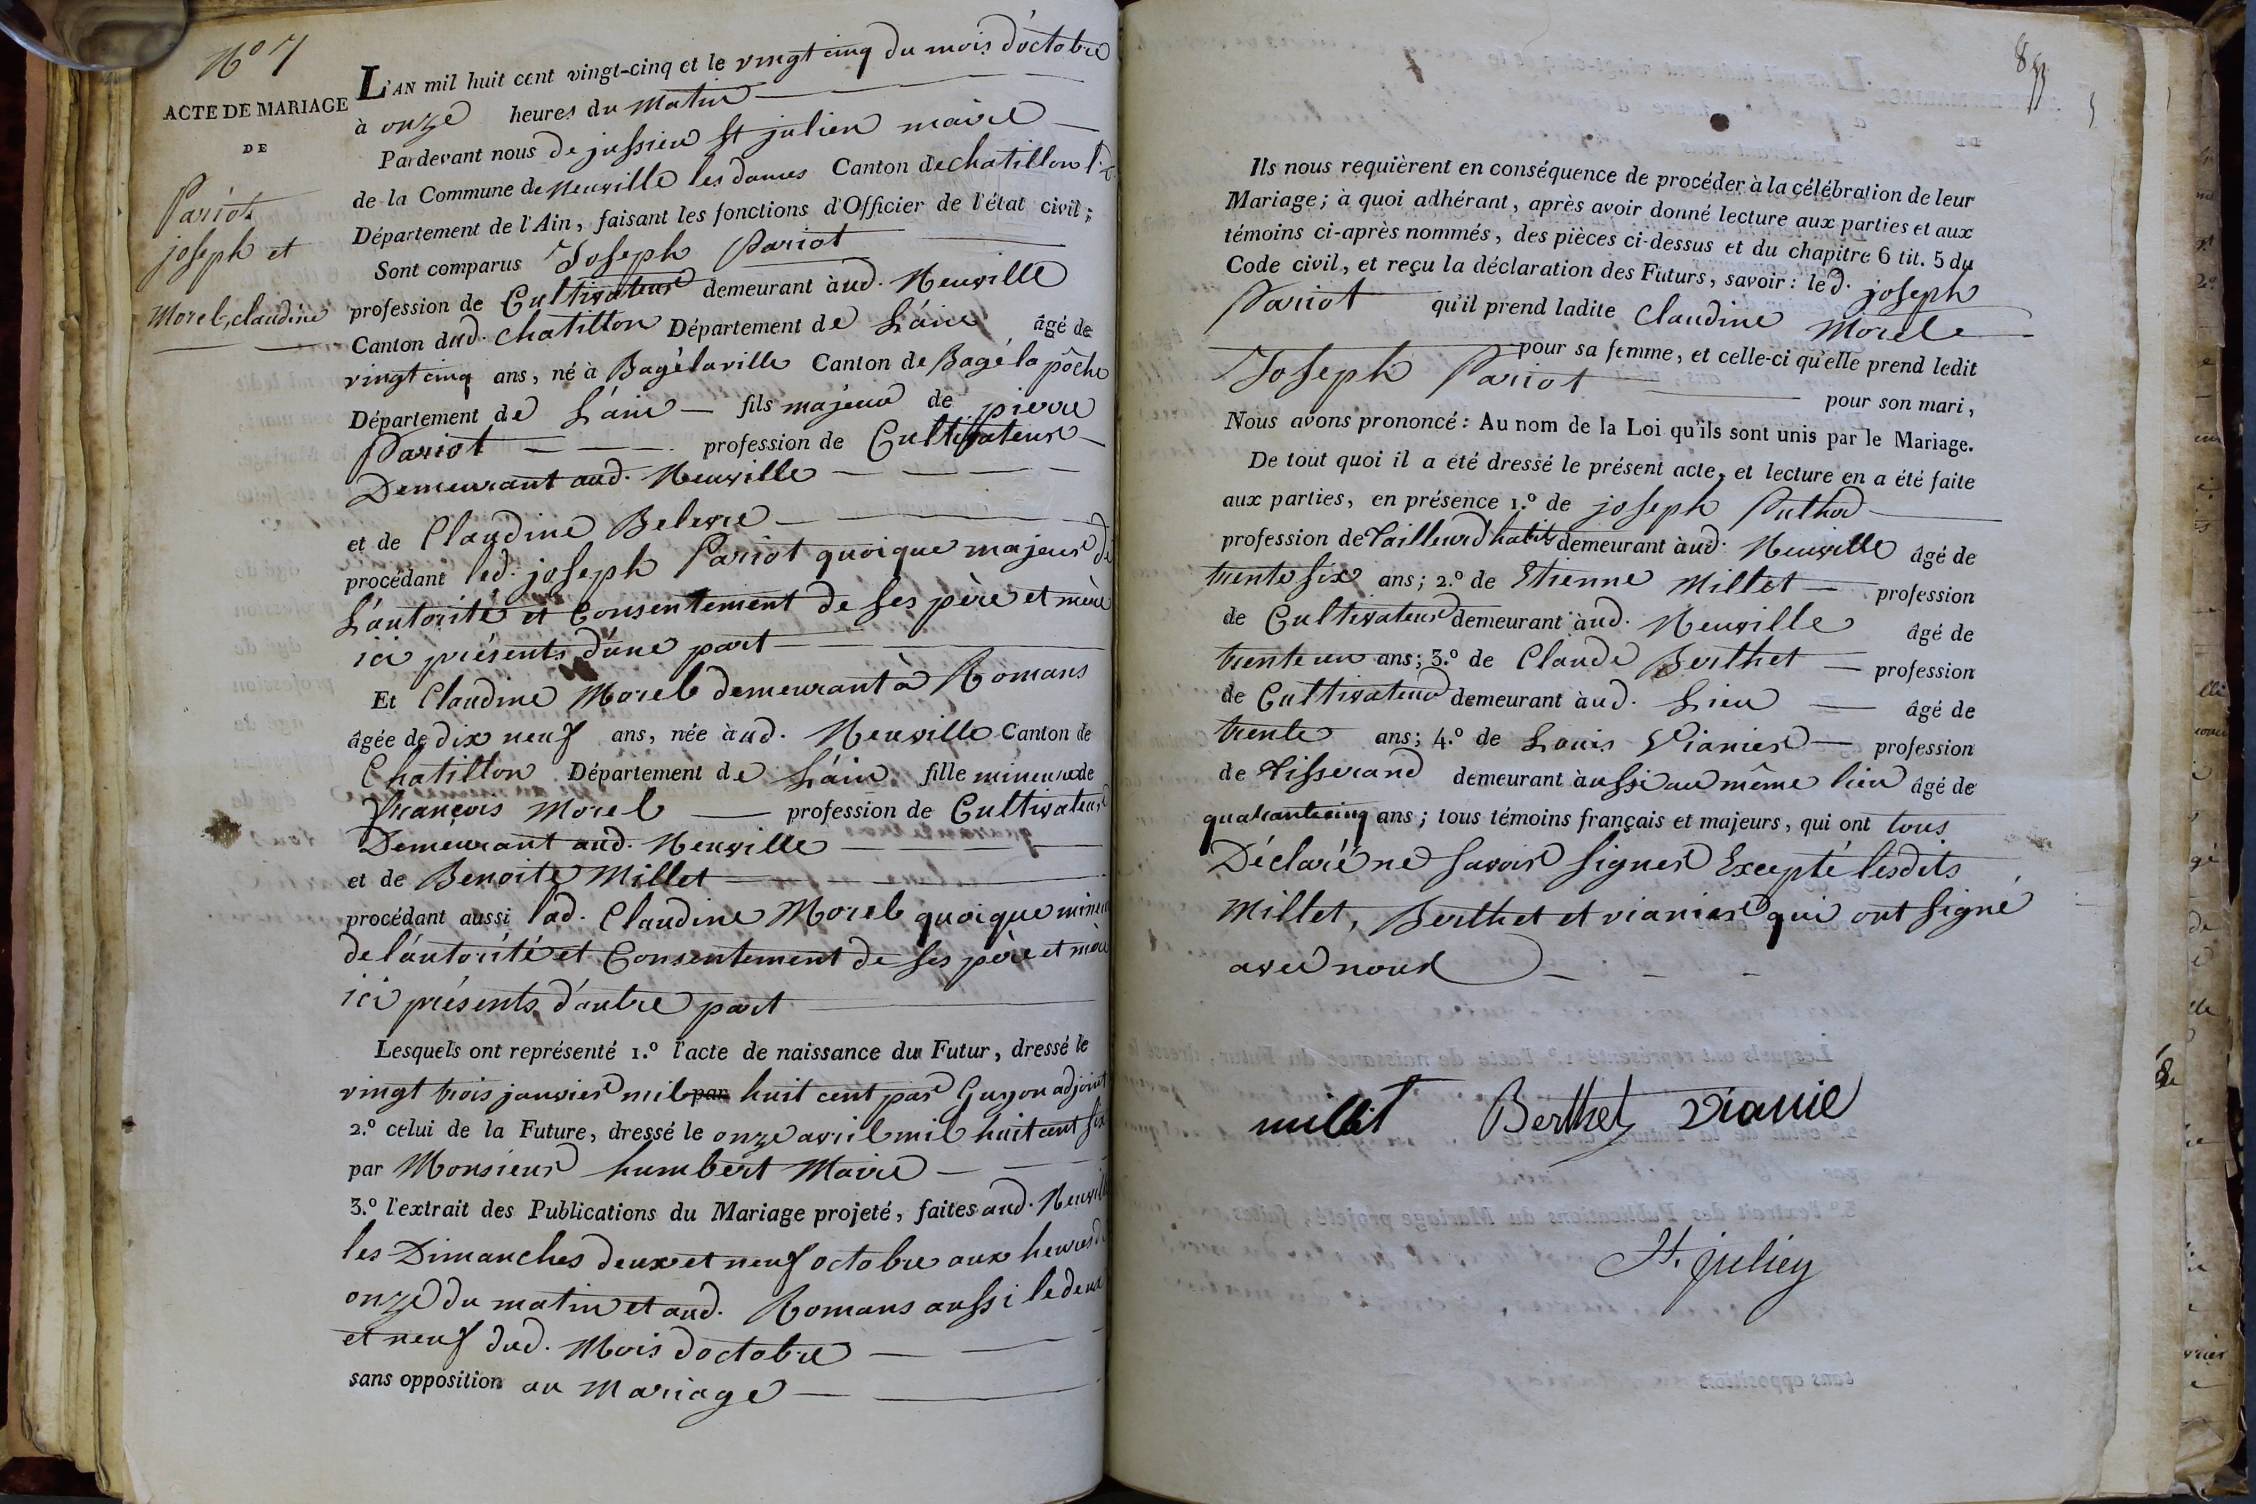 N° 7
ACTE DE MARIAGE
DE
Pariot
joseph et
Morel, claudine
L'AN mil huit cent vingt-cinq et le vingt cinq du mois d'octobre
à onze heures du matin
Pardevant nous de jussieu st julien maire
de la Commune de neuville les dames Canton de chatillon
Département de l'Ain, faisant les fonctions d'Officier de l'état civil;
Sont comparus Joseph Pariot
profession de Cultivateur demeurant àud. Neuville
Canton dud. chatillon Département de L'ain âgé de
vingt cinq ans, né à Bagélaville Canton de Bagé la
Département de L'ain fils majeur de pierre
Pariot profession de Cultivateur
Demeurant aud. Neuville
et de Claudine Belevre
procédant led. joseph Pariot quoique majeur de
L'autorité et Consentement de ses père et mère
ici présents d'une part
Et Claudine Morel demeurant à Romans
âgée de dix neuf ans, née àud. Neuville Canton de
Chatillon Département de L'ain fille mineure de
françois Morel profession de Cultivateur
Demeurant aud. Neuville
et de Benoite Millet
procédant aussi lad. Claudine Morel quoique mineu
de l'autorité et Consentement de ses père et mère
ici présents d'autre part
Lesquels ont représenté 1.° l'acte de naissance du Futur, dressé le
vingt trois janvier mil par huit cent par Guyon adjoint
2.° celui de la Future, dressé le onze avril mil huit cent six
par Monsieur humbert Maire
3.° l'extrait des Publications du Mariage projeté, faites aud. Neuville
les Dimanches deux et neuf octobre aux heures de
onze du matin et aud. Romans aussi le deux
et neuf dud. Mois d'octobre
sans opposition au Mariage
Ils nous requièrent en conséquence de procéder à la célébration de leur
Mariage; à quoi adhérant, après avoir donné lecture aux parties et aux
témoins ci-après nommés, des pièces ci-dessus et du chapitre 6 tit. 5 du
Code civil, et reçu la déclaration des Futurs, savoir: led. joseph
Pariot qu'il prend ladite Claudine Morel
pour sa femme, et celle-ci qu'elle prend ledit
Joseph Pariot pour son mari,
Nous avons prononcé: Au nom de la Loi qu'ils sont unis par le Mariage.
De tout quoi il a été dressé le présent acte, et lecture en a été faite
aux parties, en présence 1.° de joseph Puthod
profession de Tailleur d'habits demeurant àud. Neuville âgé de
trente six ans; 2.° de Etienne Millet profession
de Cultivateur demeurant àud. Neuville âgé de
trente un ans; 3.° de Claude Berthet profession
de Cultivateur demeurant àud. Lieu âgé de
trente ans; 4.° de Louis Vianier profession
de Tisserand demeurant àussi au même lieu âgé de
quarante cinq ans; tous témoins français et majeurs, qui ont tous
Déclaré ne savoir signer Excepté lesdits
Millet, Berthet et vianier qui ont signé
avec nous
millet Berthet Vianie
St. julien